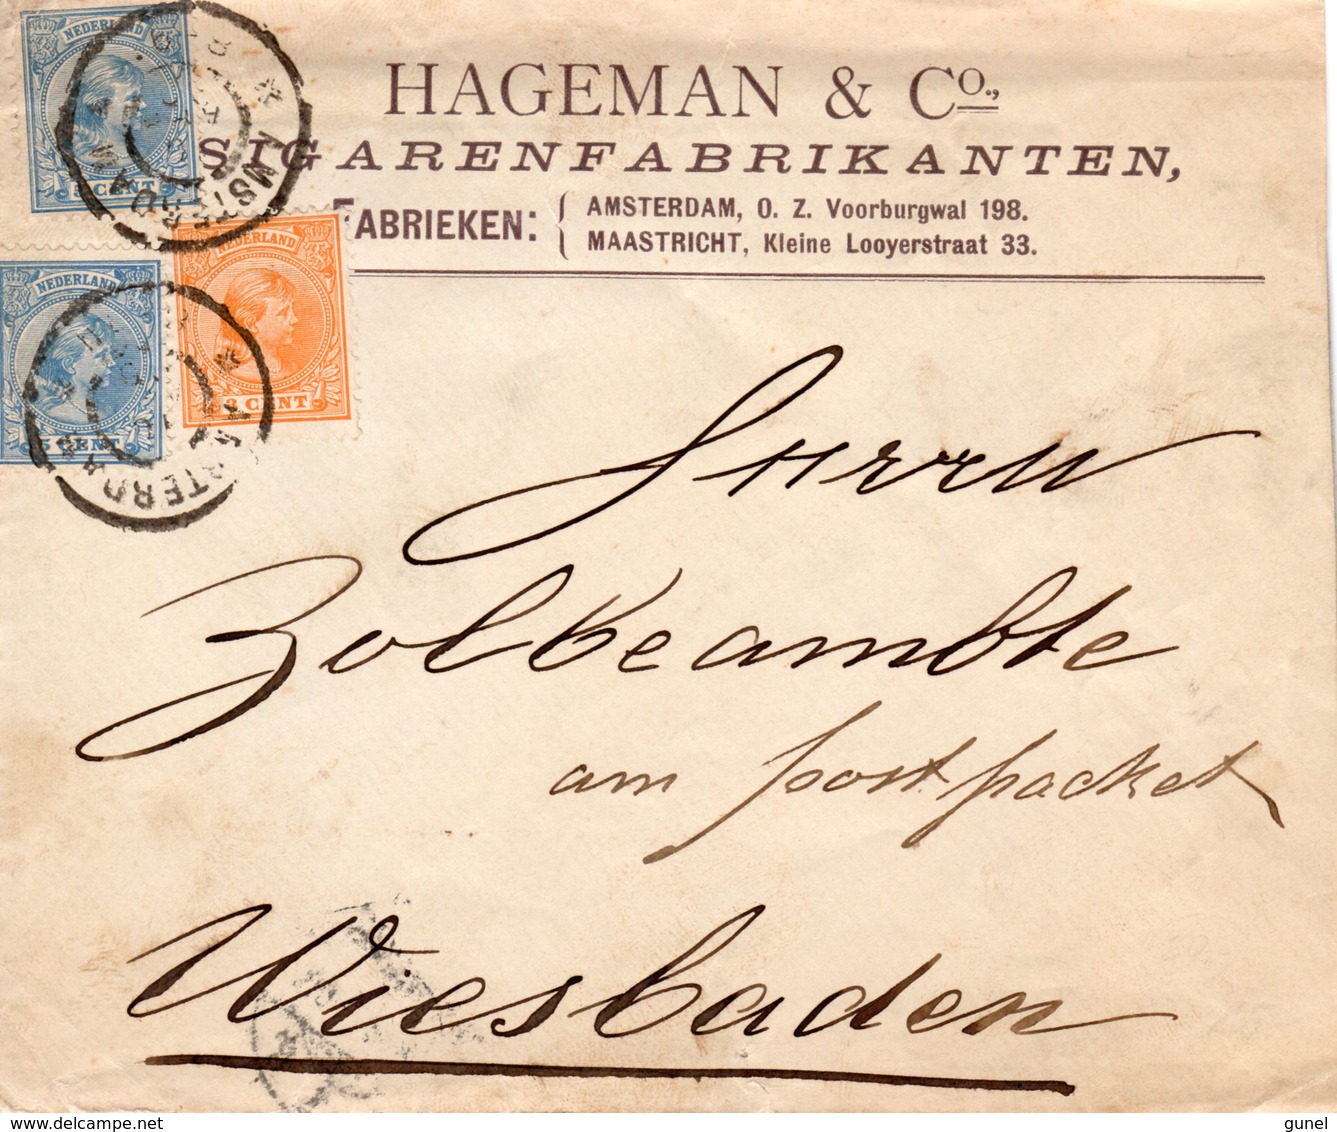 HAGEMAN & Co.,
SIGARENFABRIKANTEN,
FABRIEKEN: AMSTERDAM, O. Z. Voorburgwal 198.
MAASTRICHT, Kleine Looyerstraat 33.
NEDERLAND
5 CENT
AMSTERDAM
NEDERLAND
3 CENT
NEDERLAND
5 CENT
AMSTERDAM
Herrn
Zollbeambte
am postpacket
Wiesbaden
gunel